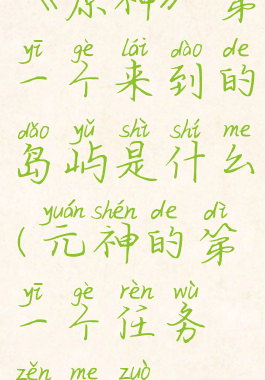 《原神》 第
yī gè lái dào de
一个来到的
dǎo yǔ shì shí me
岛屿是什么
yuán shén de dì
(元神的第
yī gè rèn wù
一个任务
zěn me zuò